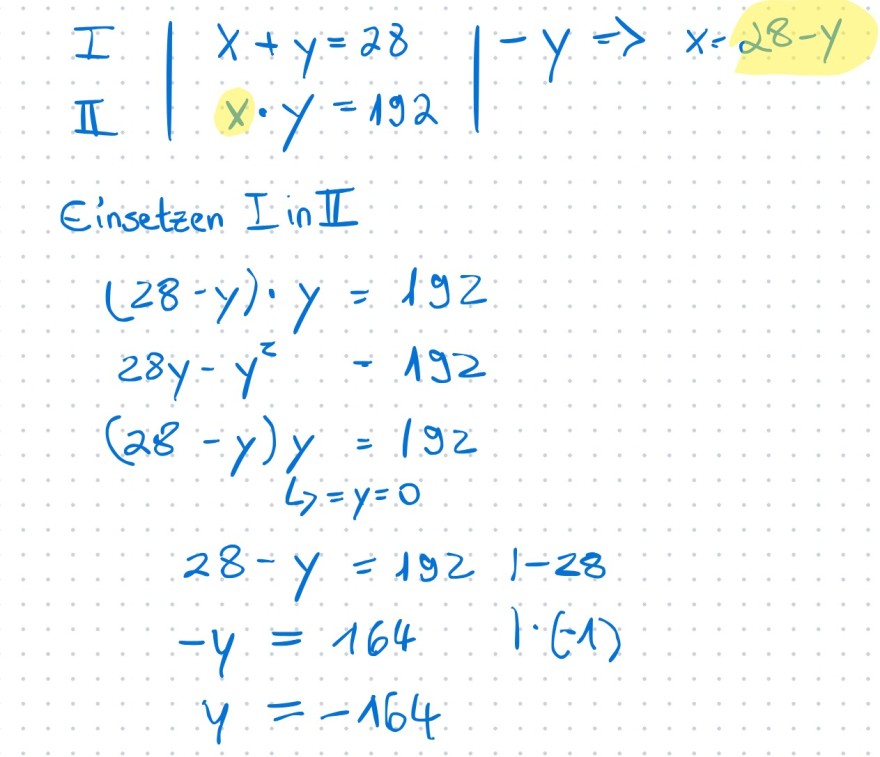 I | x + y = 28 | - y => x = 28 - y
II | x · y = 192 |
Einsetzen I in II
(28 - y) · y = 192
28y - y² - 192
(28 - y) y = 192
↳ = y = 0
28 - y = 192 | - 28
- y = 164 | · (-1)
y = - 164